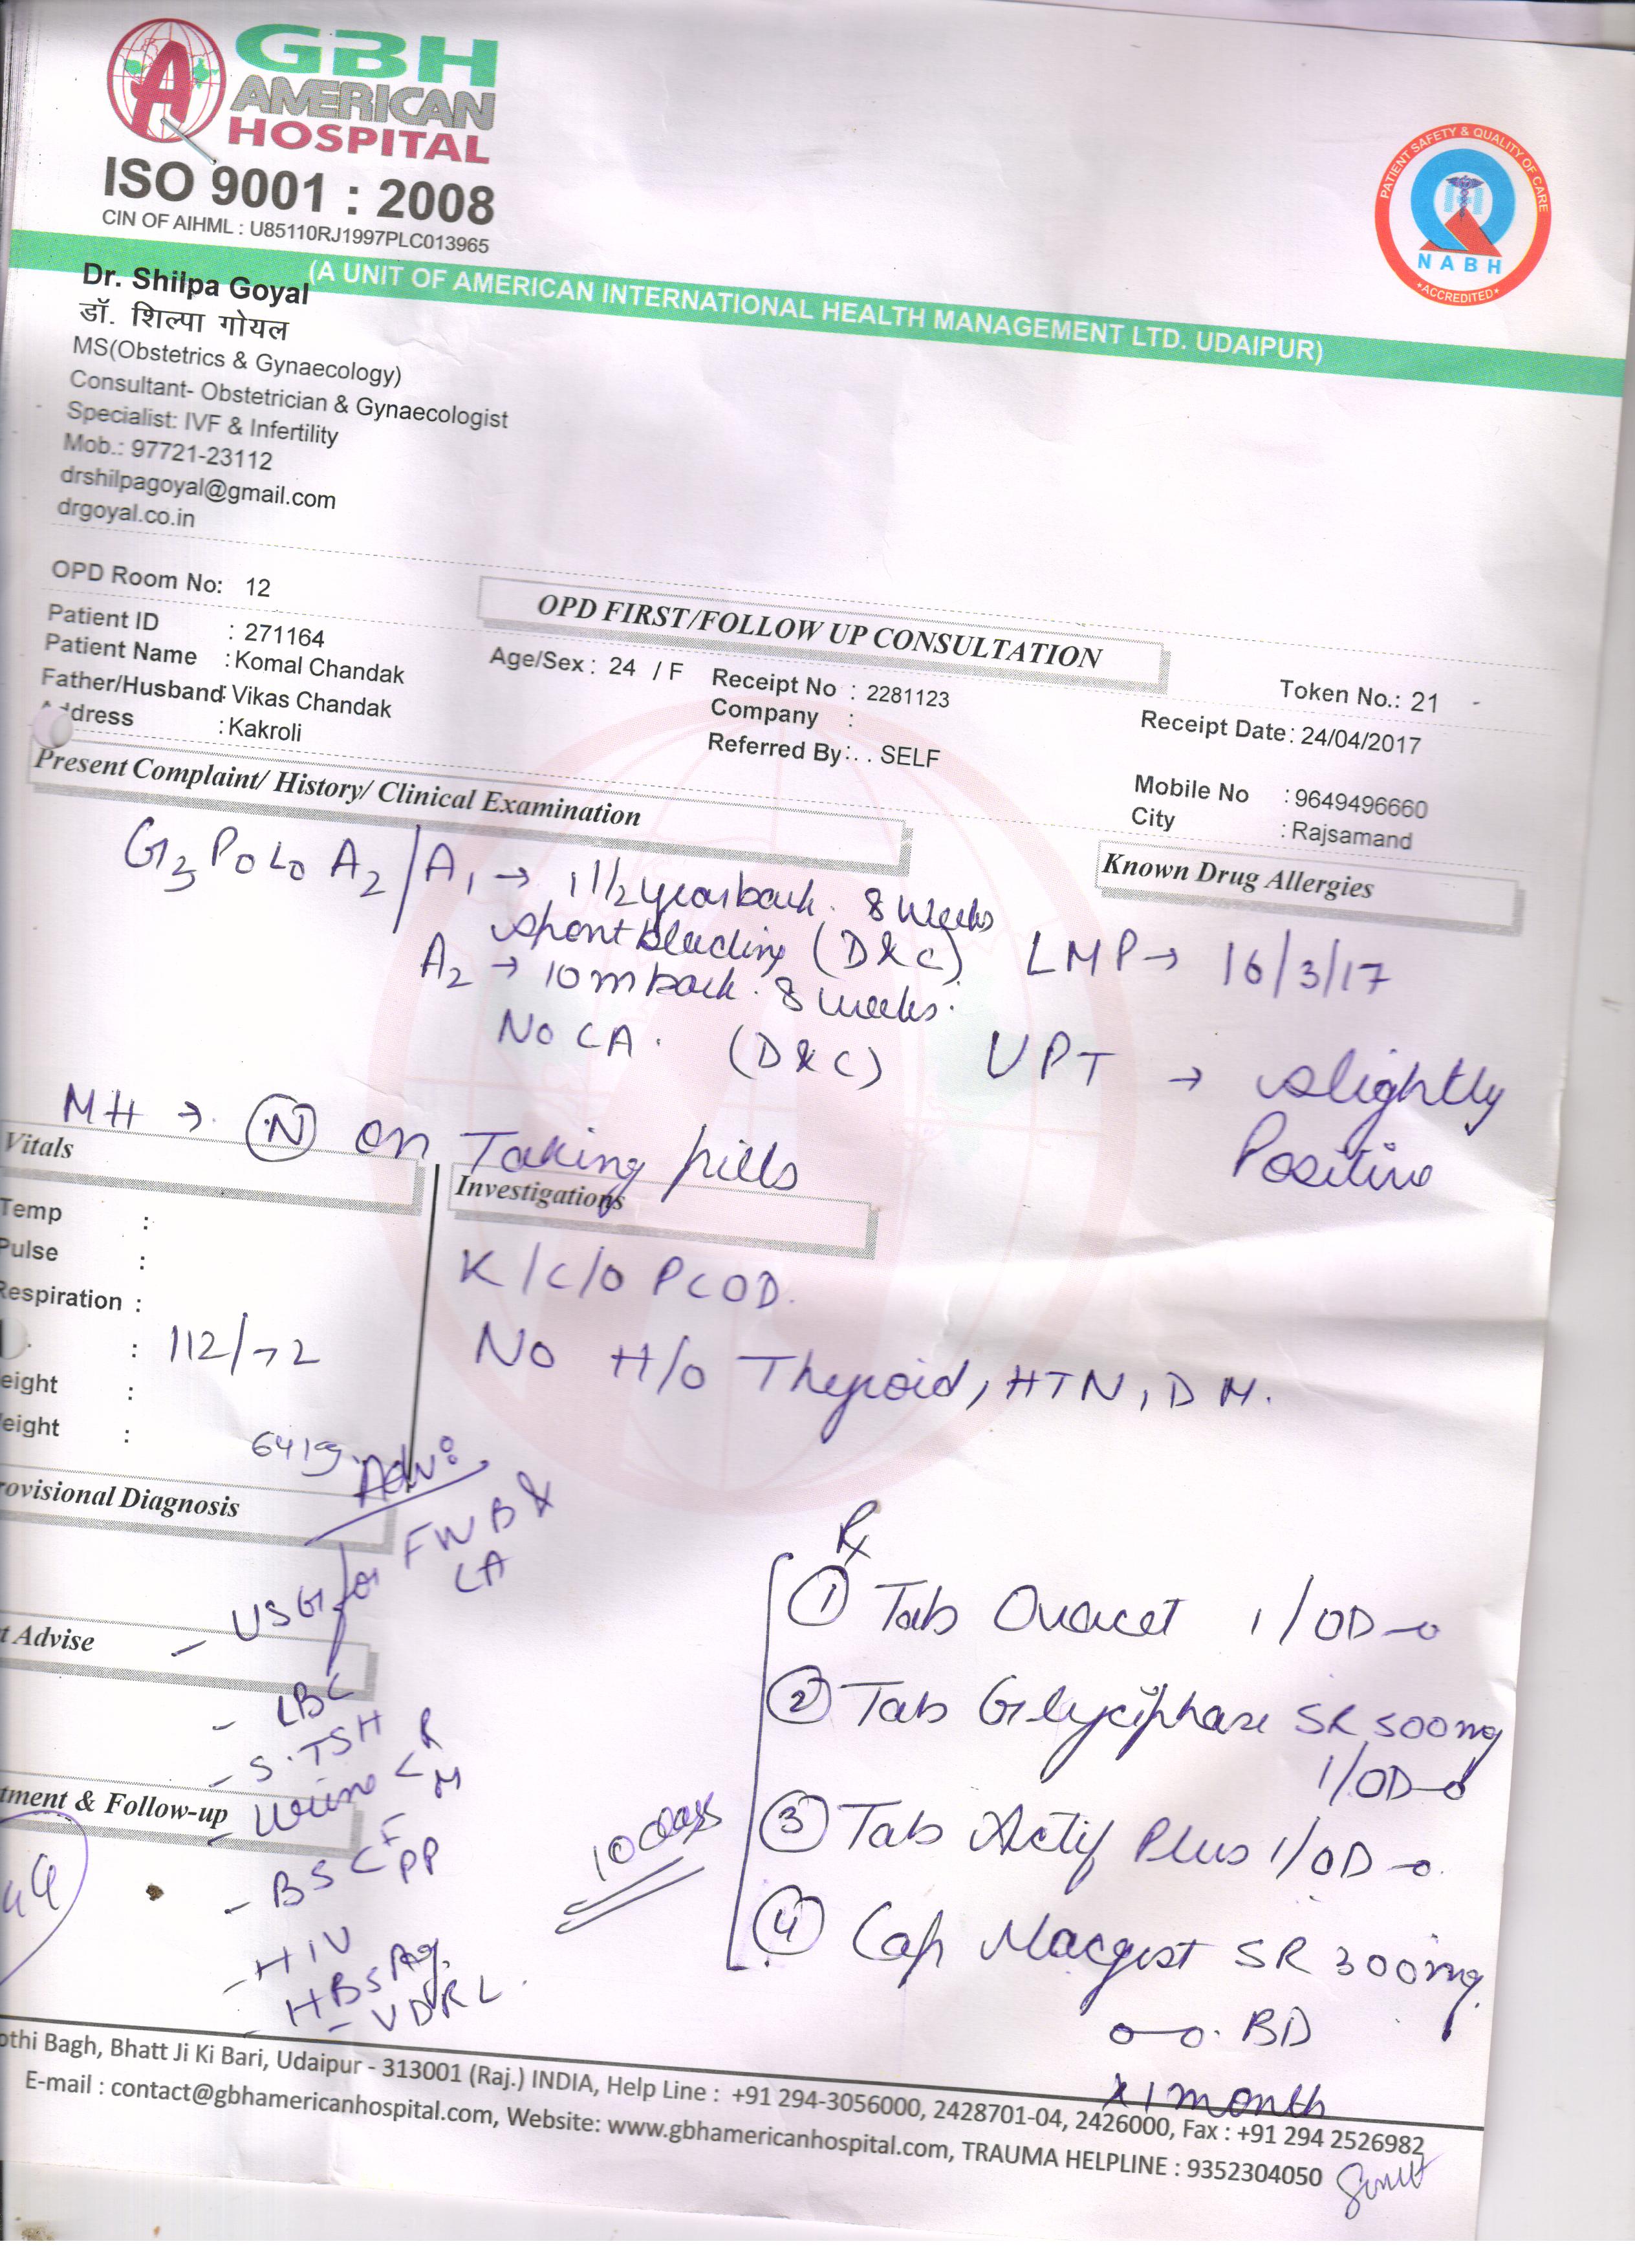 GBH
AMERICAN
HOSPITAL
ISO 9001 : 2008
CIN OF AIHML : U85110RJ1997PLC013965
PATIENT SAFETY & QUALITY OF CARE
NABH
ACCREDITED
(A UNIT OF AMERICAN INTERNATIONAL HEALTH MANAGEMENT LTD. UDAIPUR)
Dr. Shilpa Goyal
डॉ. शिल्पा गोयल
MS(Obstetrics & Gynaecology)
Consultant- Obstetrician & Gynaecologist
Specialist: IVF & Infertility
Mob.: 97721-23112
drshilpagoyal@gmail.com
drgoyal.co.in
OPD Room No: 12
OPD FIRST/FOLLOW UP CONSULTATION
Patient ID : 271164
Patient Name : Komal Chandak
Father/Husband: Vikas Chandak
Address : Kakroli
Age/Sex : 24 / F
Receipt No : 2281123
Company :
Referred By: . . SELF
Token No.: 21
Receipt Date: 24/04/2017
Mobile No : 9649496660
City : Rajsamand
Present Complaint/ History/ Clinical Examination
Known Drug Allergies
G3 P0 L0 A2 / A1 → 1 1/2 year back. 8 weeks
spont bleeding (D&C)
A2 → 10 m back. 8 weeks.
No CA. (D&C)
LMP → 16/3/17
UPT → slightly
Positive
MH → (N) on Taking pills
Vitals
Temp :
Pulse :
Respiration :
: 112/72
eight :
eight : 64 kg
Investigations
K/C/O PCOD.
No H/o Thyroid, HTN, DM.
rovisional Diagnosis
Adv:
- USG for FWB &
CA
t Advise
- CBC
- S. TSH
- Urine < R
M
tment & Follow-up
- BS < F
PP
- HIV
- HBSAg.
- VDRL.
10 days
Rx
① Tab Ovacet 1/OD
② Tab Glyciphase SR 500mg
1/OD
③ Tab Actif Plus 1/OD
④ Cap Macgest SR 300mg.
BD
x 1 month
othi Bagh, Bhatt Ji Ki Bari, Udaipur - 313001 (Raj.) INDIA, Help Line : +91 294-3056000, 2428701-04, 2426000, Fax : +91 294 2526982
E-mail : contact@gbhamericanhospital.com, Website: www.gbhamericanhospital.com, TRAUMA HELPLINE : 9352304050